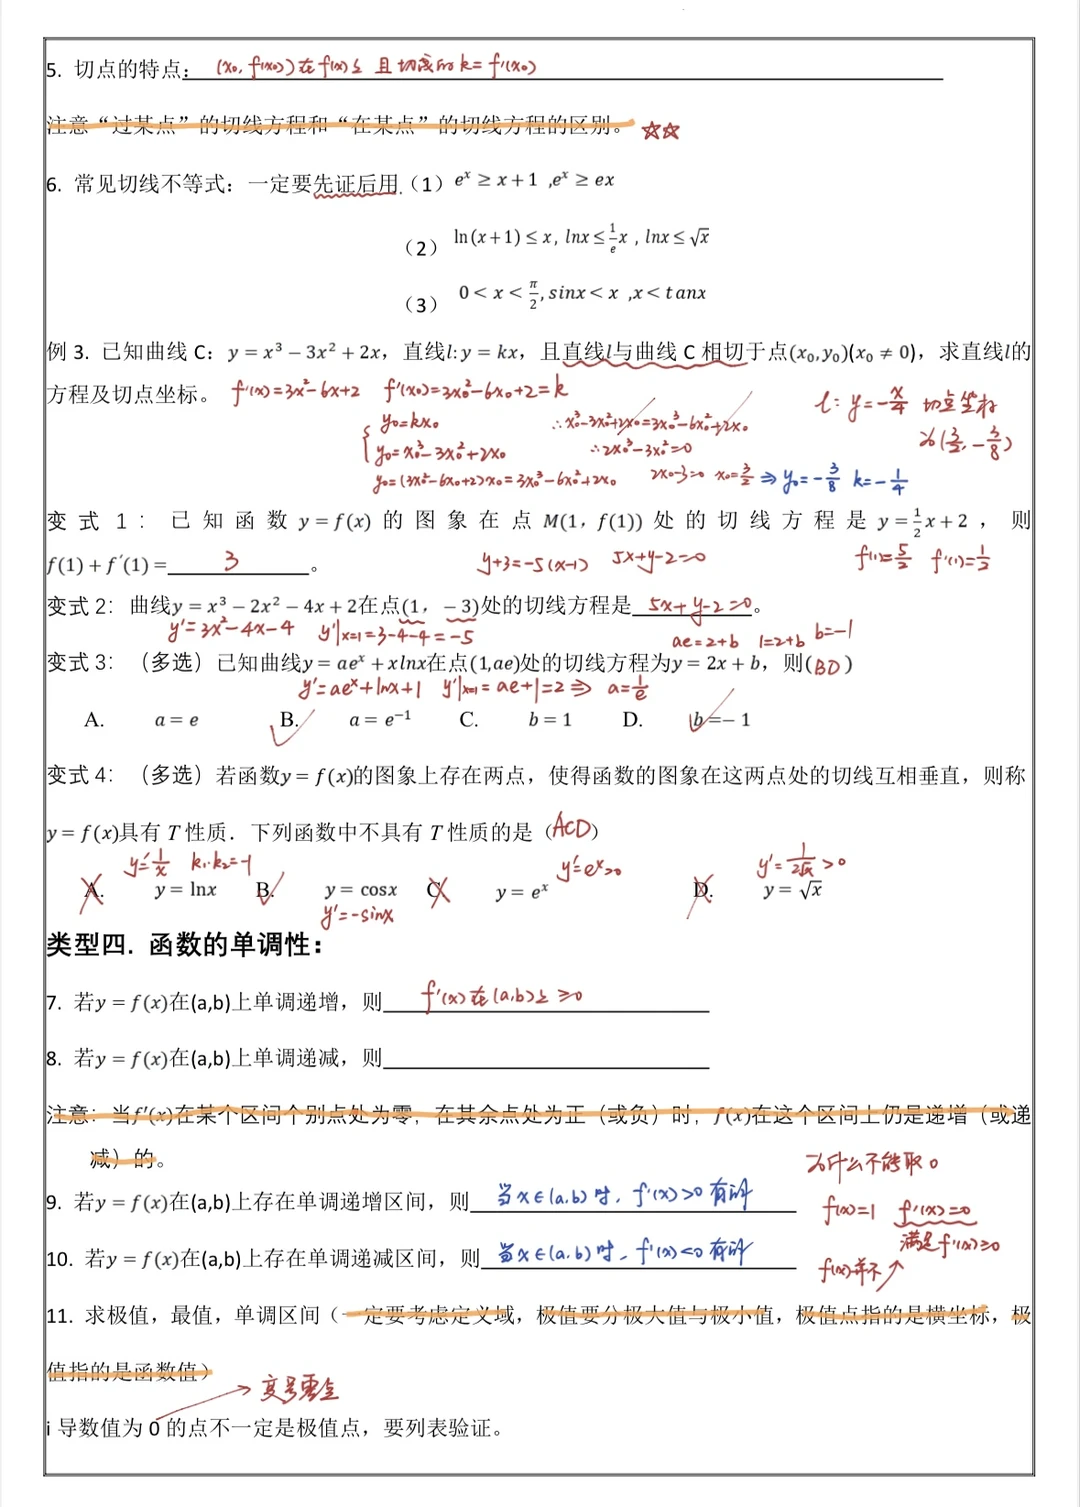 5. 切点的特点: (x₀, f(x₀))在f(x)上 且切线的k=f'(x₀)
注意“过某点”的切线方程和“在某点”的切线方程的区别。☆☆
6. 常见切线不等式：一定要先证后用.（1）eˣ ≥ x+1 ,eˣ ≥ ex
（2）ln(x+1) ≤ x, lnx ≤ 1/e x , lnx ≤ √x
（3）0 < x < π/2, sinx < x ,x < tanx
例 3. 已知曲线 C：y = x³ − 3x² + 2x，直线l: y = kx，且直线l与曲线 C 相切于点(x₀,y₀)(x₀ ≠ 0)，求直线l的
方程及切点坐标。 f'(x)=3x²-6x+2 f'(x₀)=3x₀²-6x₀+2=k
l: y=-x/4 切点坐标
y₀=kx₀ ∴x₀³-3x₀²+2x₀=3x₀³-6x₀²+2x₀
为(3/2, -3/8)
y₀=x₀³-3x₀²+2x₀ ∴2x₀³-3x₀²=0
y₀=(3x₀²-6x₀+2)x₀=3x₀³-6x₀²+2x₀ 2x₀-3=0 x₀=3/2 ⇒ y₀=-3/8 k=-1/4
变式1：已知函数 y = f(x) 的图象在点 M(1，f(1)) 处的切线方程是 y = 1/2 x + 2 ，则
f(1) + f′(1) = 3 。 y+3=-5(x-1) 5x+y-2=0 f(1)=5/2 f'(1)=1/2
变式 2：曲线y = x³ − 2x² − 4x + 2在点(1，− 3)处的切线方程是 5x+y-2=0。
y'=3x²-4x-4 y'|x=1=3-4-4=-5 ae=2+b 1=2+b b=-1
变式 3：（多选）已知曲线y = aeˣ + xlnx在点(1,ae)处的切线方程为y = 2x + b，则(BD)
y'=aeˣ+lnx+1 y'|x=1=ae+1=2⇒ a=1/e
A. a = e B. a = e⁻¹ C. b = 1 D. b =− 1
变式 4：（多选）若函数y = f(x)的图象上存在两点，使得函数的图象在这两点处的切线互相垂直，则称
y = f(x)具有 T 性质．下列函数中不具有 T 性质的是（ACD）
y'=1/x k₁·k₂=-1 y'=eˣ>0 y'=1/2√x >0
A. y = lnx B. y = cosx C. y = eˣ D. y = √x
y'=-sinx
类型四. 函数的单调性：
7. 若y = f(x)在(a,b)上单调递增，则 f'(x)在(a,b)上≥0
8. 若y = f(x)在(a,b)上单调递减，则
注意：当f′(x)在某个区间个别点处为零，在其余点处为正（或负）时，f(x)在这个区间上仍是递增（或递
减）的。
为什么不能取0
9. 若y = f(x)在(a,b)上存在单调递增区间，则 当x∈(a,b)时，f'(x)>0有解
f(x)=1 f'(x)=0
满足f'(x)≥0
10. 若y = f(x)在(a,b)上存在单调递减区间，则 当x∈(a,b)时，f'(x)<0有解
f(x)并不↗
11. 求极值，最值，单调区间（一定要考虑定义域，极值要分极大值与极小值，极值点指的是横坐标，极
值指的是函数值）
→ 变号零点
i 导数值为 0 的点不一定是极值点，要列表验证。